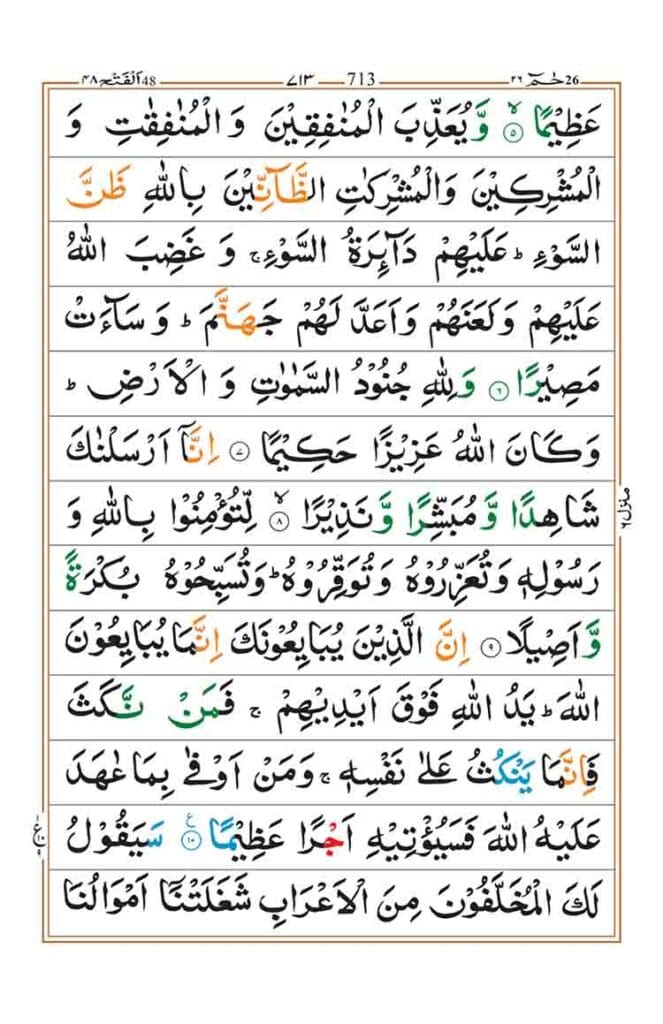 48 اَلْفَتْح ٤٨ 713 ٧١٣ 26 حٰمٓ ٢٦
عَظِيْمًا ۙ‏﴿۵﴾ وَّيُعَذِّبَ الْمُنٰفِقِيْنَ وَ الْمُنٰفِقٰتِ وَ
الْمُشْرِكِيْنَ وَالْمُشْرِكٰتِ الظَّآنِّيْنَ بِاللّٰهِ ظَنَّ
السَّوْءِ ؕ عَلَيْهِمْ دَآئِرَةُ السَّوْءِ ۚ وَ غَضِبَ اللّٰهُ
عَلَيْهِمْ وَلَعَنَهُمْ وَاَعَدَّ لَهُمْ جَهَنَّمَ ؕ وَ سَآءَتْ
مَصِيْرًا ﴿۶﴾ وَلِلّٰهِ جُنُوْدُ السَّمٰوٰتِ وَ الْاَرْضِ ؕ
وَكَانَ اللّٰهُ عَزِيْزًا حَكِيْمًا ﴿۷﴾ اِنَّاۤ اَرْسَلْنٰكَ
شَاهِدًا وَّ مُبَشِّرًا وَّنَذِيْرًا ۙ﴿۸﴾ لِّتُؤْمِنُوْا بِاللّٰهِ وَ
رَسُوْلِهٖ وَتُعَزِّرُوْهُ وَتُوَقِّرُوْهُ ؕ وَتُسَبِّحُوْهُ بُكْرَةً
وَّ اَصِيْلًا ﴿۹﴾ اِنَّ الَّذِيْنَ يُبَايِعُوْنَكَ اِنَّمَا يُبَايِعُوْنَ
اللّٰهَ ؕ يَدُ اللّٰهِ فَوْقَ اَيْدِيْهِمْ ۚ فَمَنْ نَّكَثَ
فَاِنَّمَا يَنْكُثُ عَلٰى نَفْسِهٖ ۚ وَمَنْ اَوْفٰى بِمَا عٰهَدَ
عَلَيْهُ اللّٰهَ فَسَيُؤْتِيْهِ اَجْرًا عَظِيْمًا ﴿۱۰﴾ع سَيَقُوْلُ
لَكَ الْمُخَلَّفُوْنَ مِنَ الْاَعْرَابِ شَغَلَتْنَاۤ اَمْوَالُنَا
منزل ٦
ع